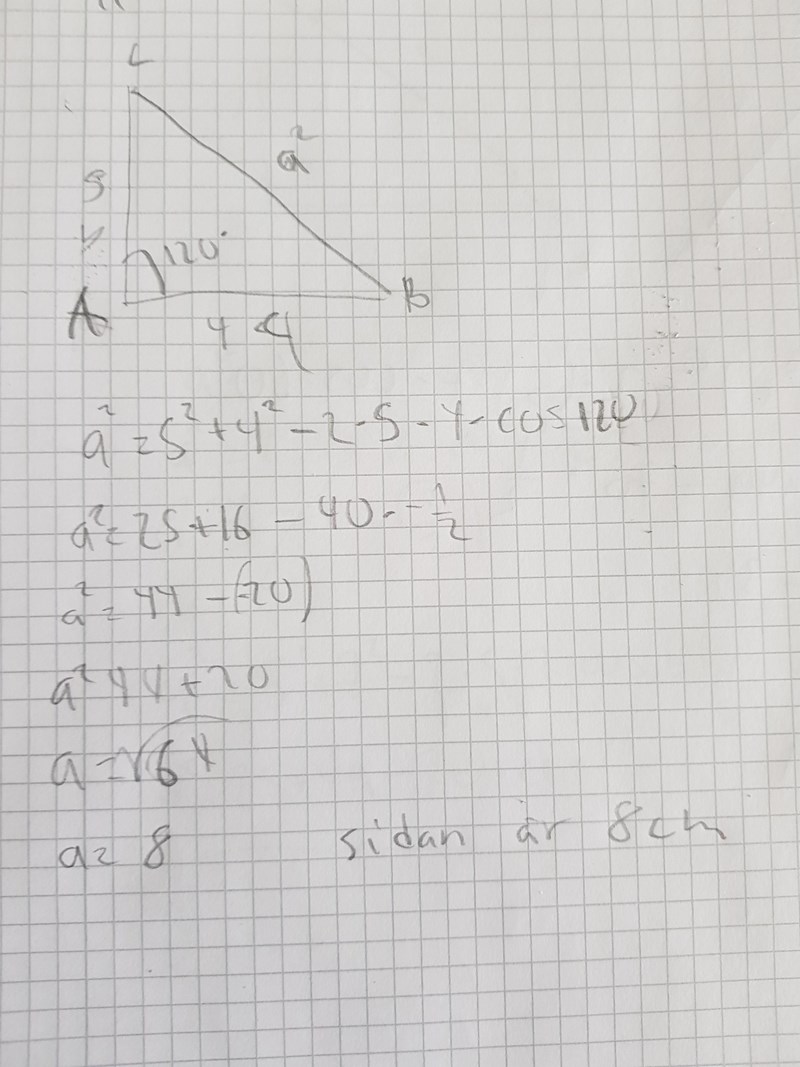 C
a²
5
120°
A
B
4 4
a² = 5² + 4² - 2 · 5 · 4 · cos 120
a² = 25 + 16 - 40 · -1/2
a² = 44 - (-20)
a² 44 + 20
a = √64
a = 8 sidan är 8cm